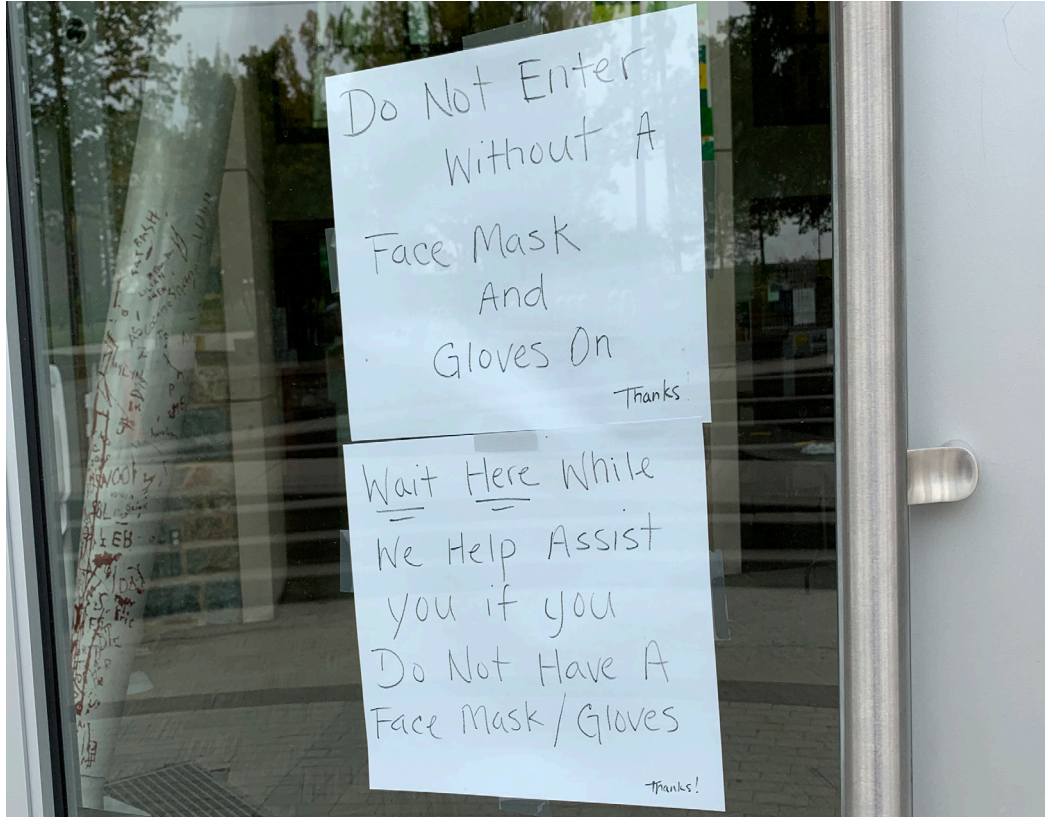 Do Not Enter
Without A
Face Mask
And
Gloves On
Thanks!
Wait Here While
We Help Assist
you if you
Do Not Have A
Face Mask/Gloves
Thanks!